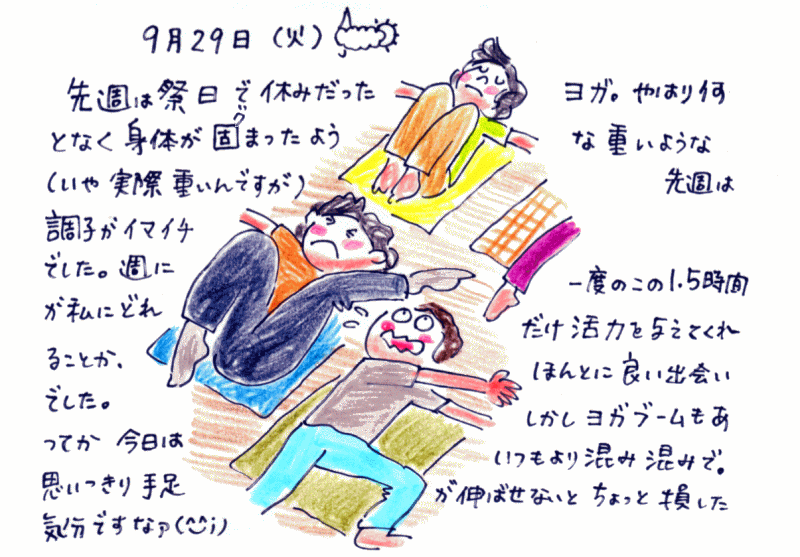 9月29日（火）
先週は祭日で休みだった ヨガ。やはり何
となく身体が固まったよう な重いような
(いや実際重いんですが) 先週は
調子がイマイチ
でした。週に 一度のこの1.5時間
が私にどれ だけ活力を与えてくれ
ることか、 ほんとに良い出会い
でした。 しかしヨガブームもあ
ってか今日は いつもより混み混みで。
思いっきり手足 が伸ばせないとちょっと損した
気分ですなァ(^^;)